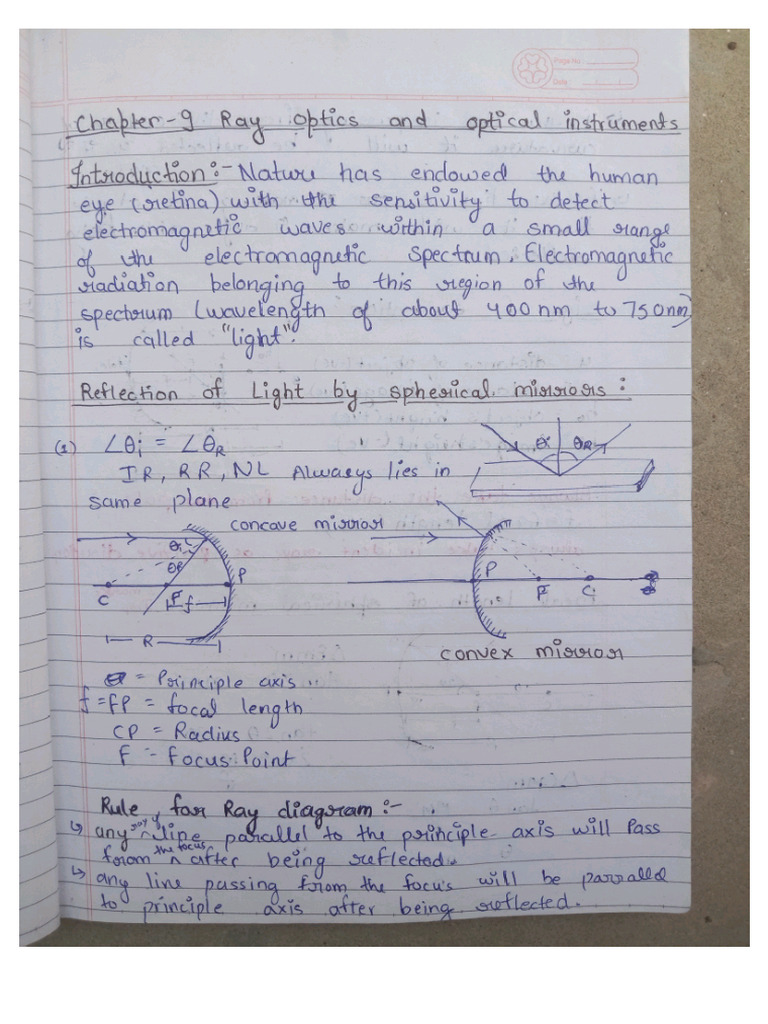 Page No.
Date
Chapter-9 Ray optics and optical instruments
Introduction:- Nature has endowed the human
eye (retina) with the sensitivity to detect
electromagnetic waves within a small range
of the electromagnetic spectrum. Electromagnetic
radiation belonging to this region of the
spectrum (wavelength of about 400nm to 750nm)
is called "light".
Reflection of Light by spherical mirrors:
(1) ∠θi = ∠θR
IR, RR, NL Always lies in
same plane
θi θR
concave mirror
θi
θR
C F P
f
R
P F C
convex mirror
= Principle axis
f = FP = focal length
CP = Radius
F = Focus Point
Rule for Ray diagram:-
↳ any ray of line parallel to the principle axis will Pass
from the focus after being reflected.
↳ any line passing from the focus will be parralld
to principle axis after being reflected.